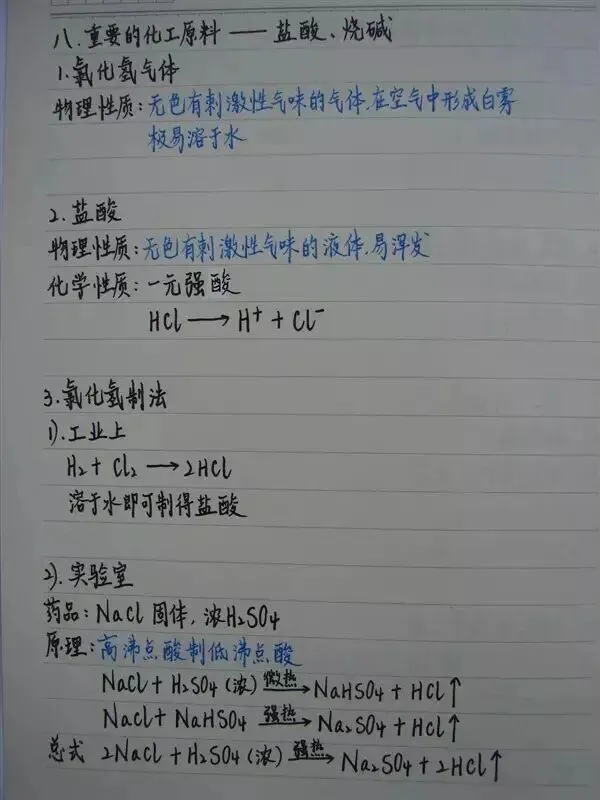 八.重要的化工原料 —— 盐酸、烧碱
1.氯化氢气体
物理性质:无色有刺激性气味的气体.在空气中形成白雾
极易溶于水
2.盐酸
物理性质:无色有刺激性气味的液体.易挥发
化学性质:一元强酸
HCl⟶H⁺ + Cl⁻
3.氯化氢制法
1).工业上
H₂ + Cl₂ ⟶2HCl
溶于水即可制得盐酸
2).实验室
药品:NaCl 固体,浓H₂SO₄
原理:高沸点酸制低沸点酸
NaCl + H₂SO₄ (浓) 微热⟶ NaHSO₄ + HCl↑
NaCl + NaHSO₄ 强热⟶ Na₂SO₄ + HCl↑
总式 2NaCl + H₂SO₄ (浓) 强热⟶ Na₂SO₄ + 2HCl↑